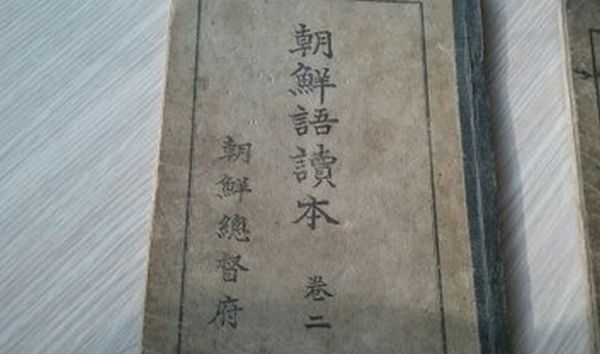 朝鮮語讀本
卷二
朝鮮總督府